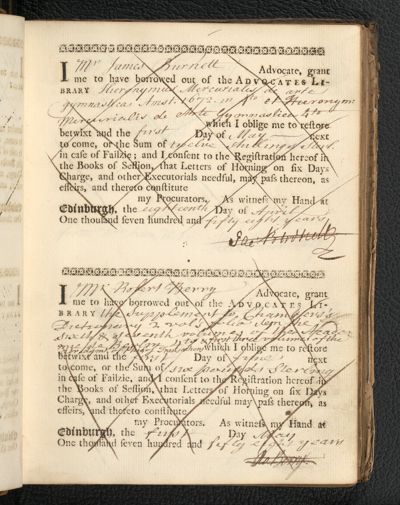 I Mr James Burnett Advocate, grant
me to have borrowed out of the ADVOCATES LI-
BRARY Hieronymus Mercurialis de arte
gymnastica Amst. 1672 in 4to et Hieronym:
Mercurialis de Arte Gymnastica 4to
which I oblige me to restore
betwixt and the first Day of May next
to come, or the Sum of twelve shillings Sterl.
in case of Failzie; and I consent to the Registration hereof in
the Books of Session, that Letters of Horning on six Days
Charge, and other Executorials needful, may pass thereon, as
effeirs, and thereto constitute
my Procurators. As witness my Hand at
Edinburgh, the eighteenth Day of April
One thousand seven hundred and fifty eight years
Ja: Burnett
I Mr Robert Berry Advocate, grant
me to have borrowed out of the ADVOCATES LI-
BRARY the Supplement to Chambers's
Dictionary 2 vols folio
sixth & eleventh volumes of
which I oblige me to restore
betwixt and the first Day of June next
to come, or the Sum of six pounds Sterling
in case of Failzie, and I consent to the Registration hereof in
the Books of Session, that Letters of Horning on six Days
Charge, and other Executorials needful may pass thereon, as
effeirs, and thereto constitute
my Procurators. As witness my Hand at
Edinburgh, the first Day May
One thousand seven hundred and fifty eight years